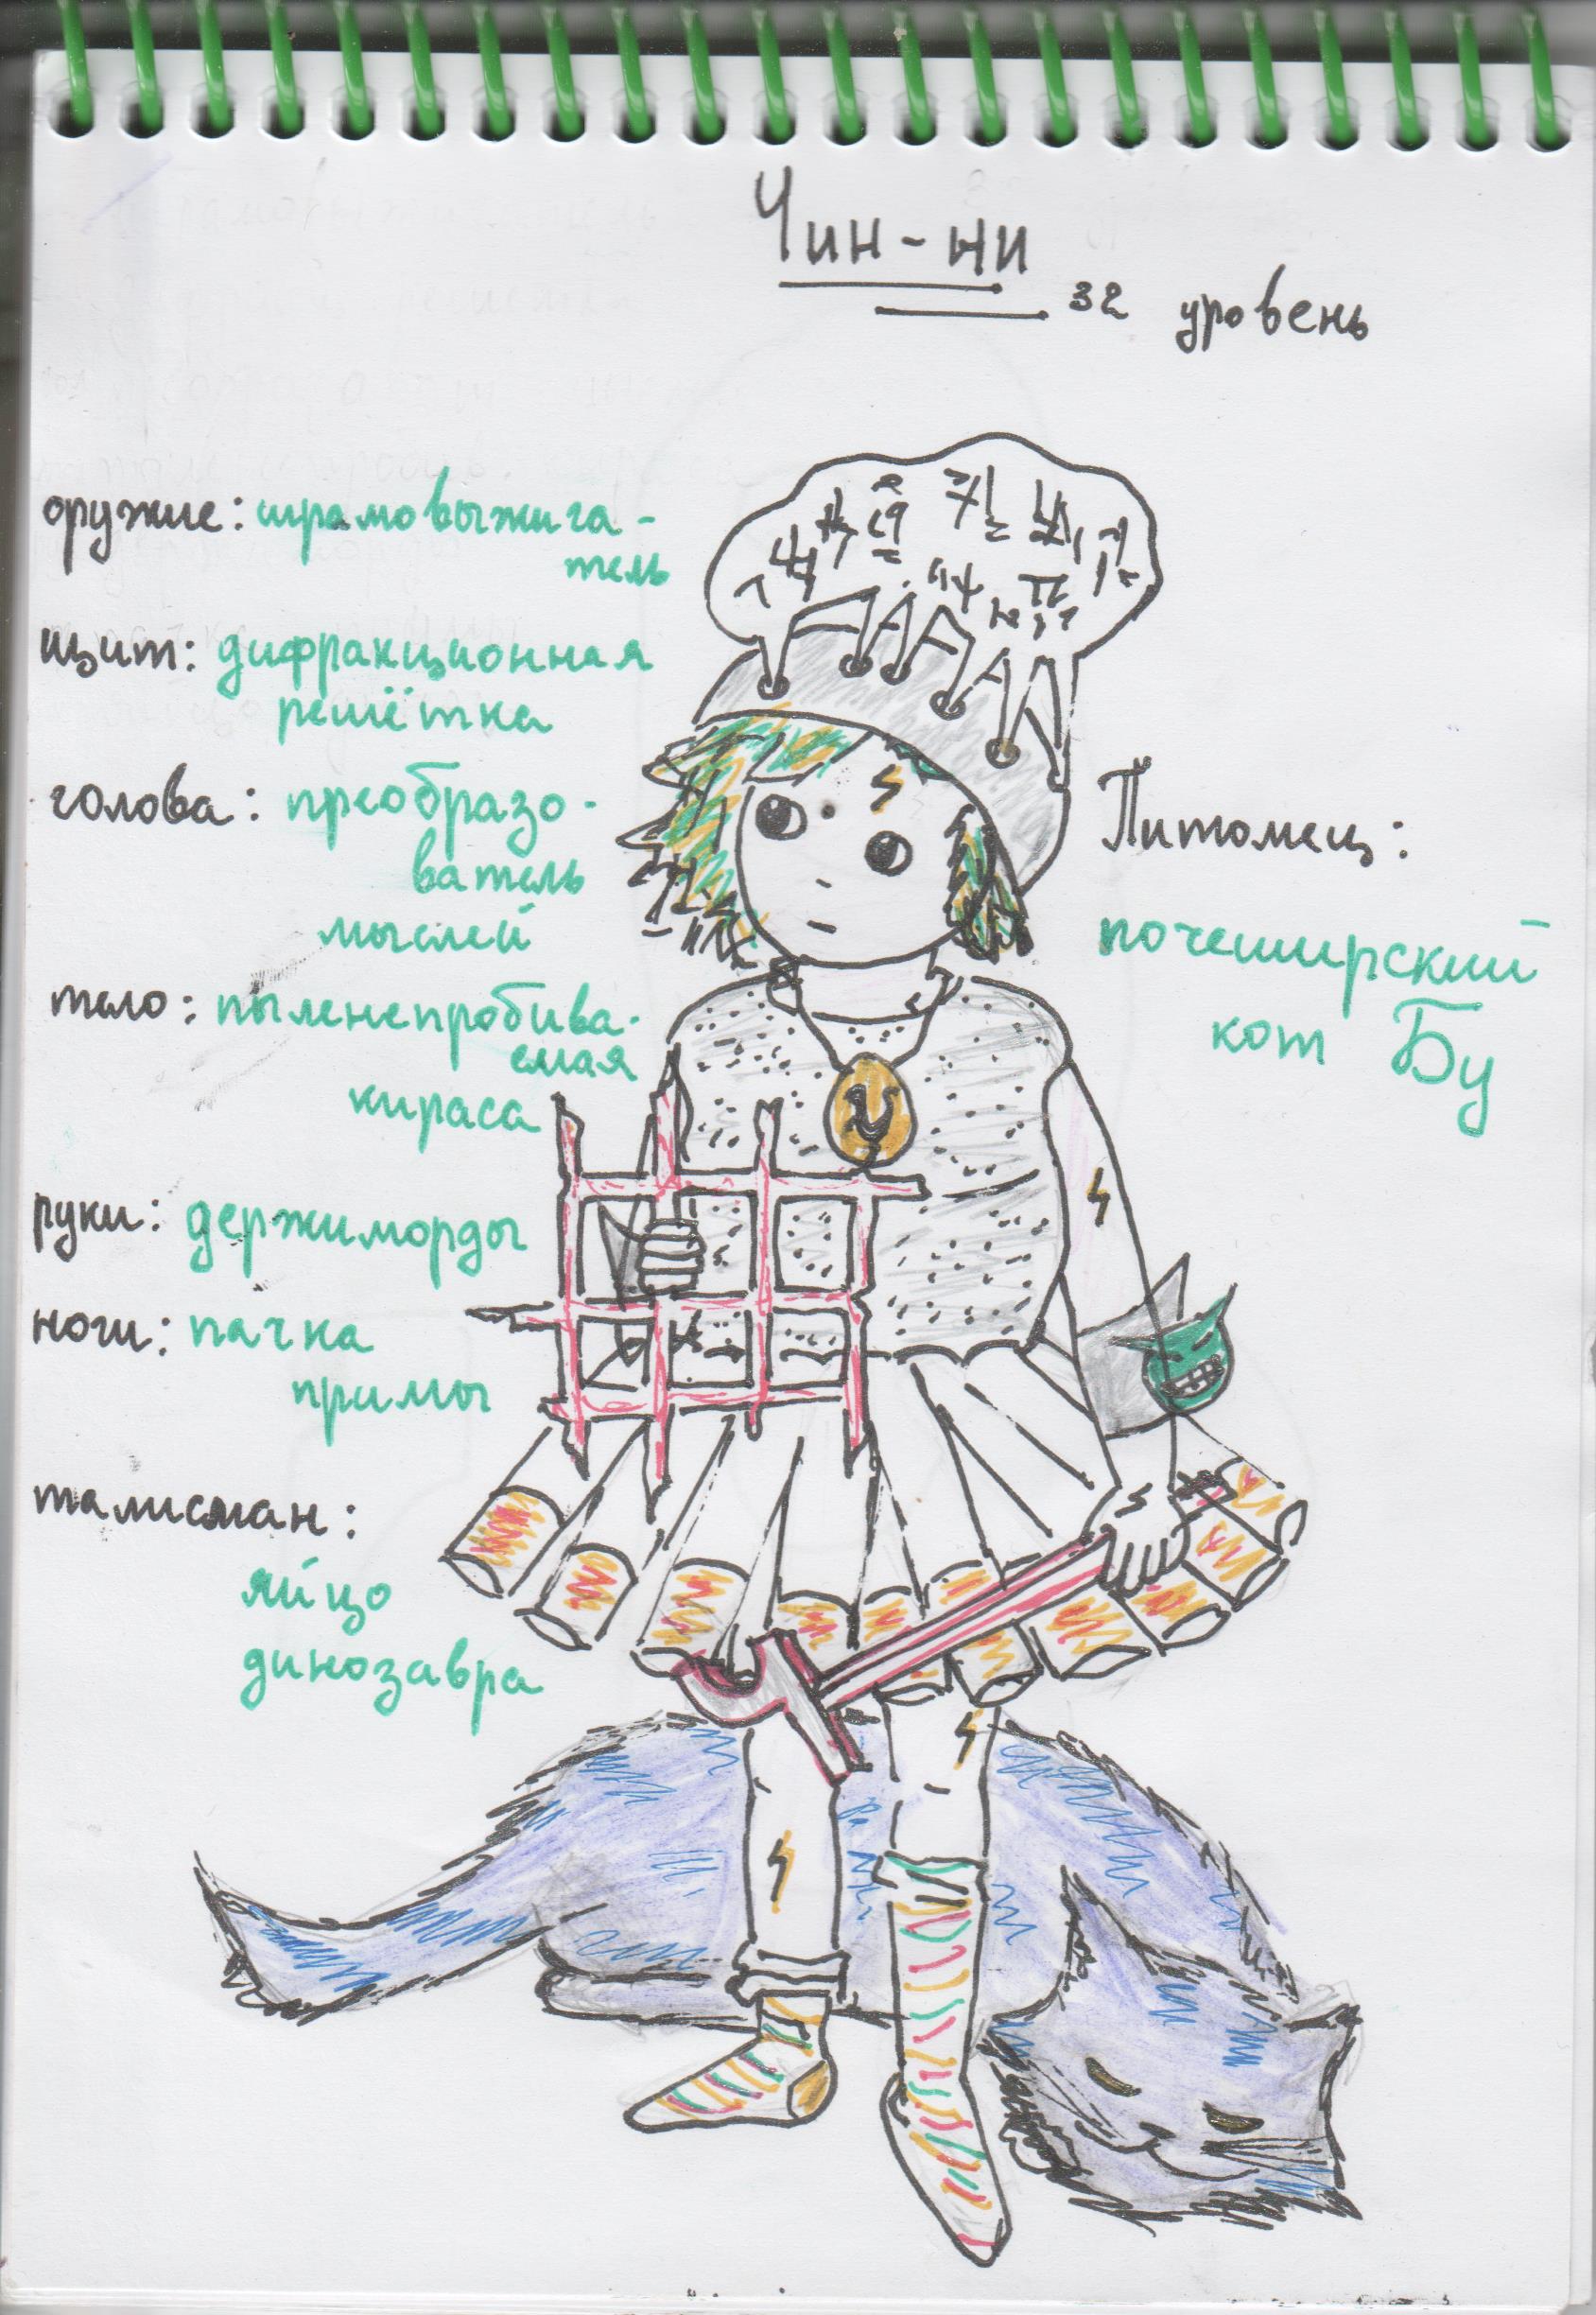 Чин-ни
32 уровень
оружие: шрамовыжига-
тель
щит: дифракционная
решётка
голова: преобразо-
ватель
мыслей
тело: пыленепробива-
емая
кираса
руки: держиморды
ноги: пачка
примы
талисман:
яйцо
динозавра
Питомец:
почеширский
кот Бу